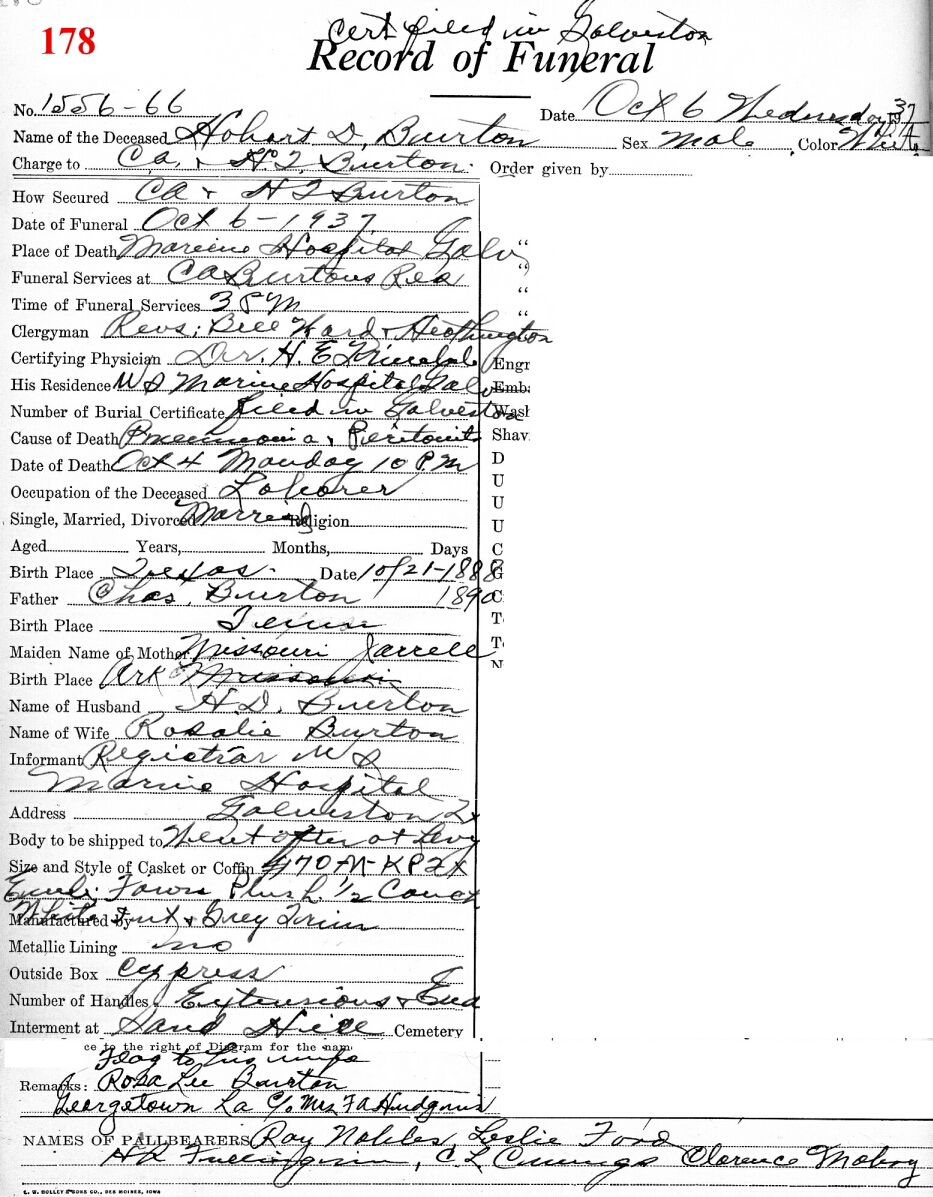 Cert filed in Galveston
178
Record of Funeral
No. 1556-66
Date Oct 6 Wednesday 1937
Name of the Deceased Hobart D. Burton Sex Male Color White
Charge to Ca. + H.T. Burton. Order given by
How Secured CA + H T Burton
Date of Funeral Oct 6-1937
Place of Death Mareine Hospital Galv "
Funeral Services at CA Burtons Res "
Time of Funeral Services 3 PM "
Clergyman Revs; Bill Ward + "
Certifying Physician Dr. H. E. Engr
His Residence U S Marine Hospital Galv Emb
Number of Burial Certificate filed in Galveston Wash
Cause of Death Pneumonia + Peritonitis Shav
Date of Death Oct 4 Monday 10 PM D
Occupation of the Deceased Laborer U
U
Single, Married, Divorced Married Religion U
Aged Years, Months, Days C
Birth Place Texas. Date 10/21-1888 G
Father Chas. Burton 1890 C
Birth Place Tenn T
Maiden Name of Mother Missouri Jarrell T
Birth Place Ark Missouri N
Name of Husband H.D. Burton
Name of Wife Rosalie Burton
Informant Registrar U S
Marine Hospital
Address Galveston Tx
Body to be shipped to Went after at Levy
Size and Style of Casket or Coffin 470-M-KP2X
Fawn Plush 1/2 Couch
Manufactured by White Int + Grey Trim
Metallic Lining no
Outside Box Cypress
Number of Handles Extensions + End
Interment at Sand Hill Cemetery
ce to the right of Diagram for the name
Flag to his wife
Remarks: Rosa Lee Burton
Georgetown La C/o Mrs F A Hudgins
NAMES OF PALLBEARERS Ray Nobles, Leslie Ford
H L Fullingim, C L Cumings Clarence
L. W. HOLLEY & SONS CO., DES MOINES, IOWA